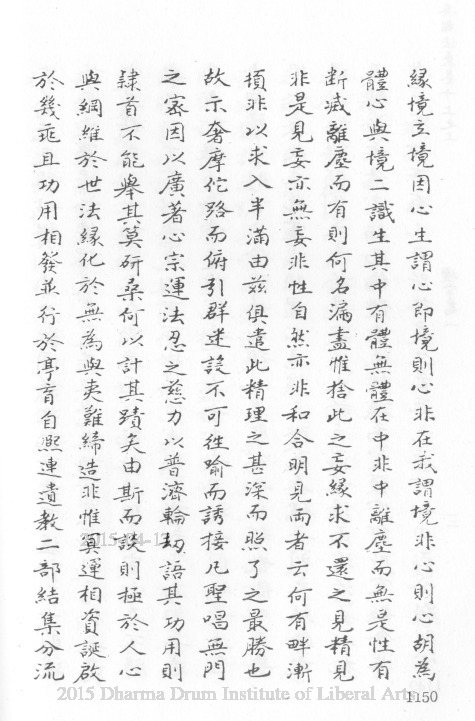 緣境立境因心生謂心即境則心非在我謂境非心則心胡為
體心與境二識生其中有體無體在中非中離塵而無是性有
断滅離塵而有則何名漏盡惟捨此之妄緣求不還之見精見
非是見妄亦無妄非性自然亦非和合明見兩者云何有畔漸
頓非以求入半滿由茲俱遣此精理之甚深而照了之最勝也
故示奢摩佗路而俯引群迷設不可徃喻而誘接凡聖唱無門
之宻因以廣著心宗運法忍之慈力以普濟輪刧語其功用則
隷首不能舉其莫研桑何以計其蹟矣由斯而談則極於人心
與綱維於世法緣化於無為與夷難締造非惟冥運相資誕啟
於幾乖且功用相發並行於亭育自熙連遺教二部結集分流
1150
2015 Dharma Drum Institute of Liberal Arts